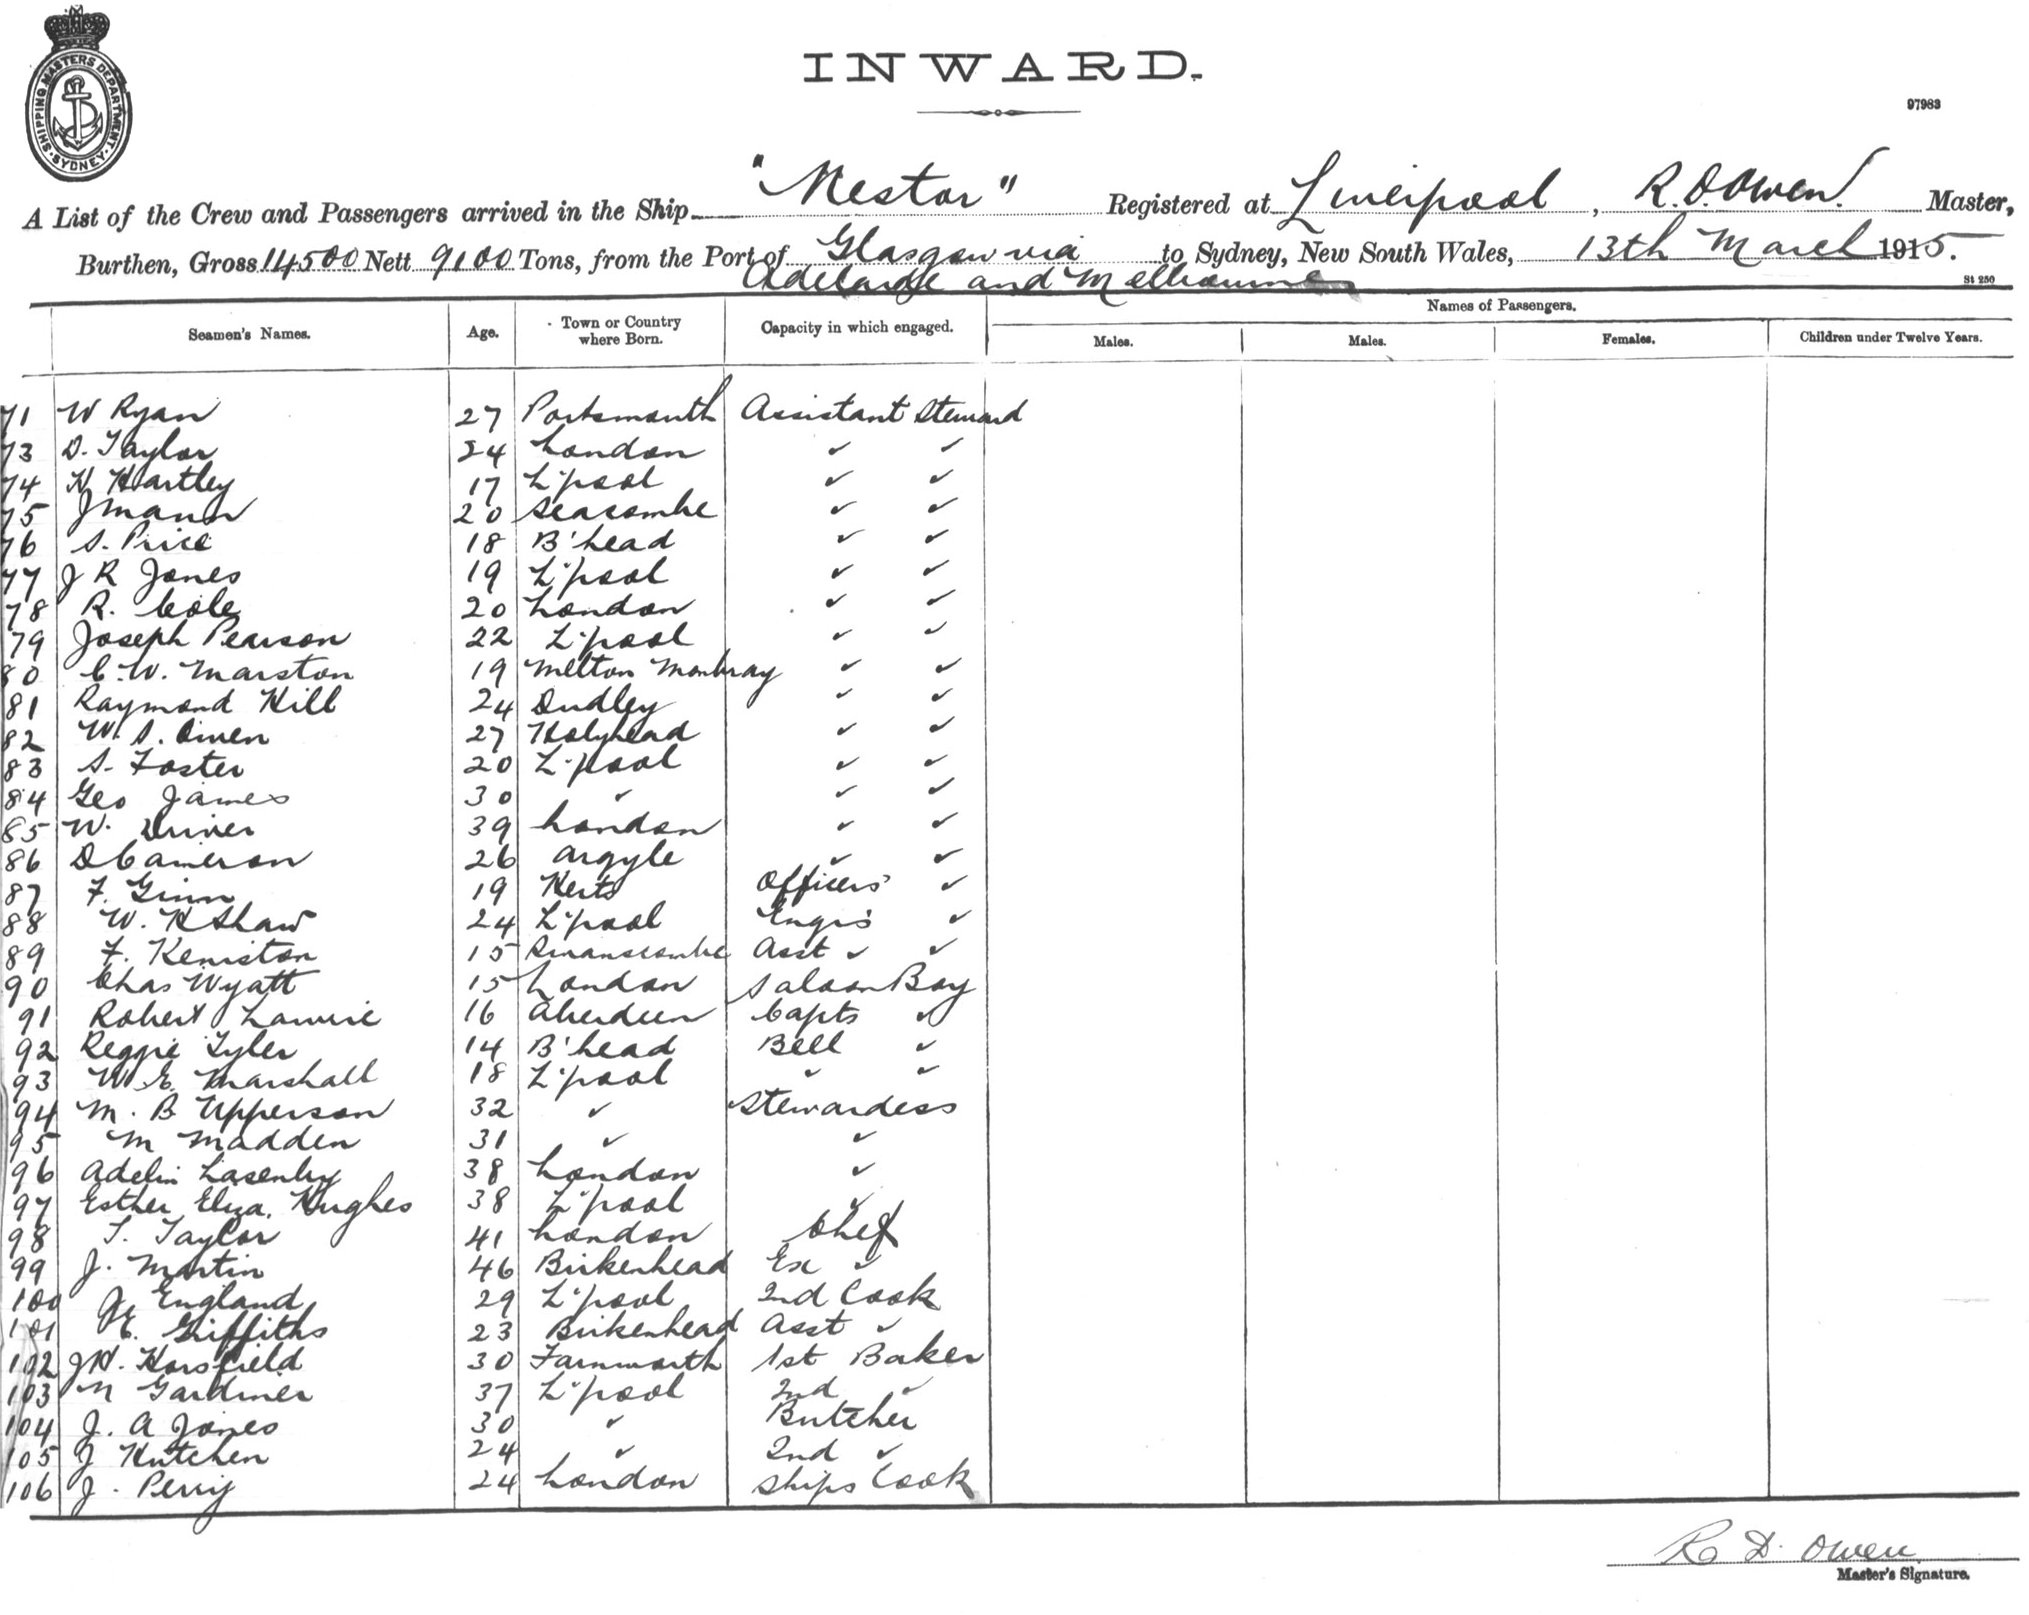 SHIPPING MASTERS DEPARTMENT
SYDNEY
INWARD.
97983
A List of the Crew and Passengers arrived in the Ship "Nestor" Registered at Liverpool, R. D. Owen. Master,
Burthen, Gross 14500 Nett 9100 Tons, from the Port of Glasgow via to Sydney, New South Wales, 13th March 1915.
Adelaide and Melbourne
St 250
Seamen's Names. Age. Town or Country where Born. Capacity in which engaged. Names of Passengers.
Males. Males. Females. Children under Twelve Years.
71 W Ryan 27 Portsmouth Assistant Steward
73 D. Taylor 24 London ✓ ✓
74 H Hartley 17 L'pool ✓ ✓
75 J Mann 20 Seacombe ✓ ✓
76 S. Price 18 B'head ✓ ✓
77 J R Jones 19 L'pool ✓ ✓
78 R. Cole 20 London ✓ ✓
79 Joseph Pearson 22 L'pool ✓ ✓
80 C. W. Marston 19 Melton Mowbray ✓ ✓
81 Raymond Hill 24 Dudley ✓ ✓
82 W. S. Owen 27 Holyhead ✓ ✓
83 S. Foster 20 L'pool ✓ ✓
84 Geo James 30 ✓ ✓ ✓
85 W. Driver 39 London ✓ ✓
86 D Cameron 26 Argyle ✓ ✓
87 F. Ginn 19 Herts Officers' ✓
88 W. H Shaw 24 L'pool Engrs' ✓
89 F. Keniston 15 Asst ✓ ✓
90 Chas Wyatt 15 London Saloon Boy
91 Robert Lawrie 16 Aberdeen Capts ✓
92 Reggie Tyler 14 B'head Bell ✓
93 W. E. Marshall 18 L'pool ✓ ✓
94 M. B Upperson 32 ✓ Stewardess
95 M Madden 31 ✓ ✓
96 Adelin Lasenby 38 London ✓
97 Esther Eliza. Hughes 38 L'pool ✓
98 T. Taylor 41 London Chef
99 J. Martin 46 Birkenhead Ex ✓
100 J. England 29 L'pool 2nd Cook
101 E. Griffiths 23 Birkenhead Asst ✓
102 J H. Horsfield 30 Farnworth 1st Baker
103 N Gardiner 37 L'pool 2nd ✓
104 J. A Jones 30 ✓ Butcher
105 J Hutchen 24 ✓ 2nd ✓
106 J. Perry 24 London Ships Cook
R. D. Owen
Master's Signature.